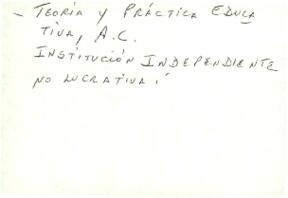 - TEORÍA Y PRÁCTICA EDUCA
TIVA, A.C.
INSTITUCIÓN INDEPENDIENTE
NO LUCRATIVA.